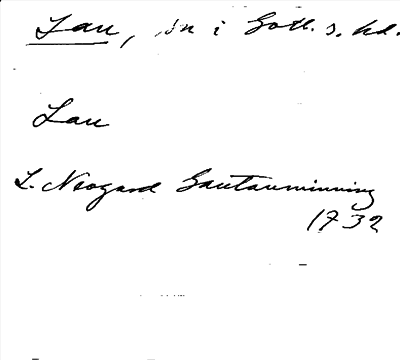 Lau, sn i Gotl. s. hd.
Lau
L. Neogard Gautauminning
1732